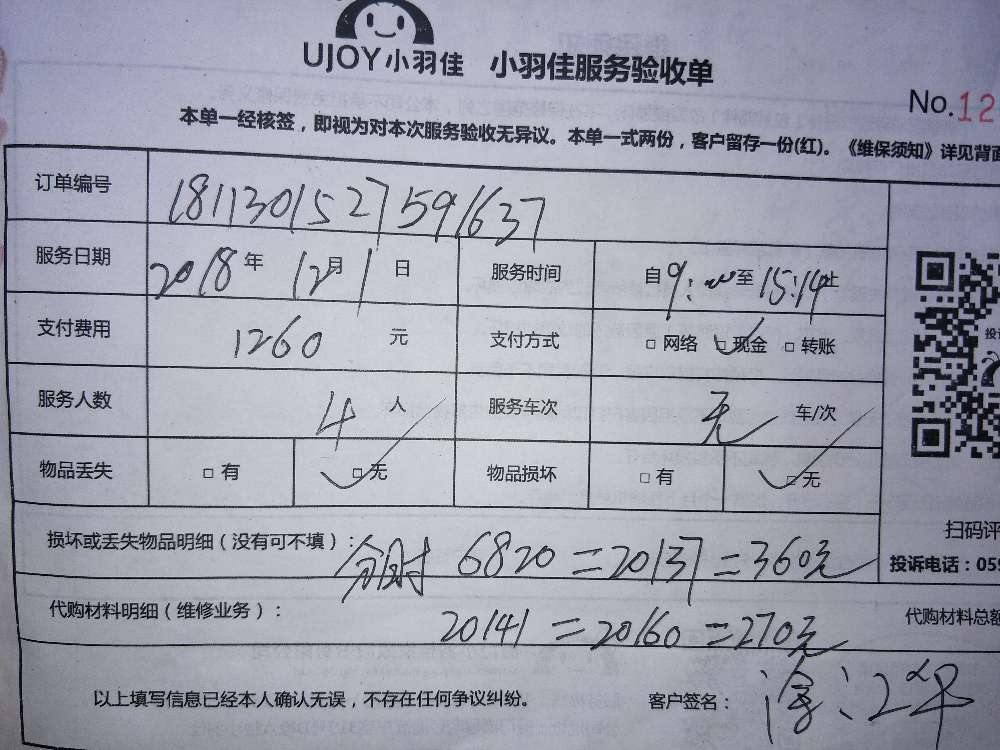 UJOY小羽佳 小羽佳服务验收单
No.12
本单一经核签，即视为对本次服务验收无异议。本单一式两份，客户留存一份(红)。《维保须知》详见背面
订单编号 1811301527591637
服务日期 2018年 12月 1日 服务时间 自9: 至15:14止
支付费用 1260 元 支付方式 □网络 □现金 □转账
服务人数 4 人 服务车次 无 车/次
物品丢失 □有 □无 物品损坏 □有 □无
扫码评
投诉电话：059
损坏或丢失物品明细（没有可不填）： 6820=20137=360元
代购材料明细（维修业务）： 20141=20160=270元
代购材料总额
以上填写信息已经本人确认无误，不存在任何争议纠纷。 客户签名：